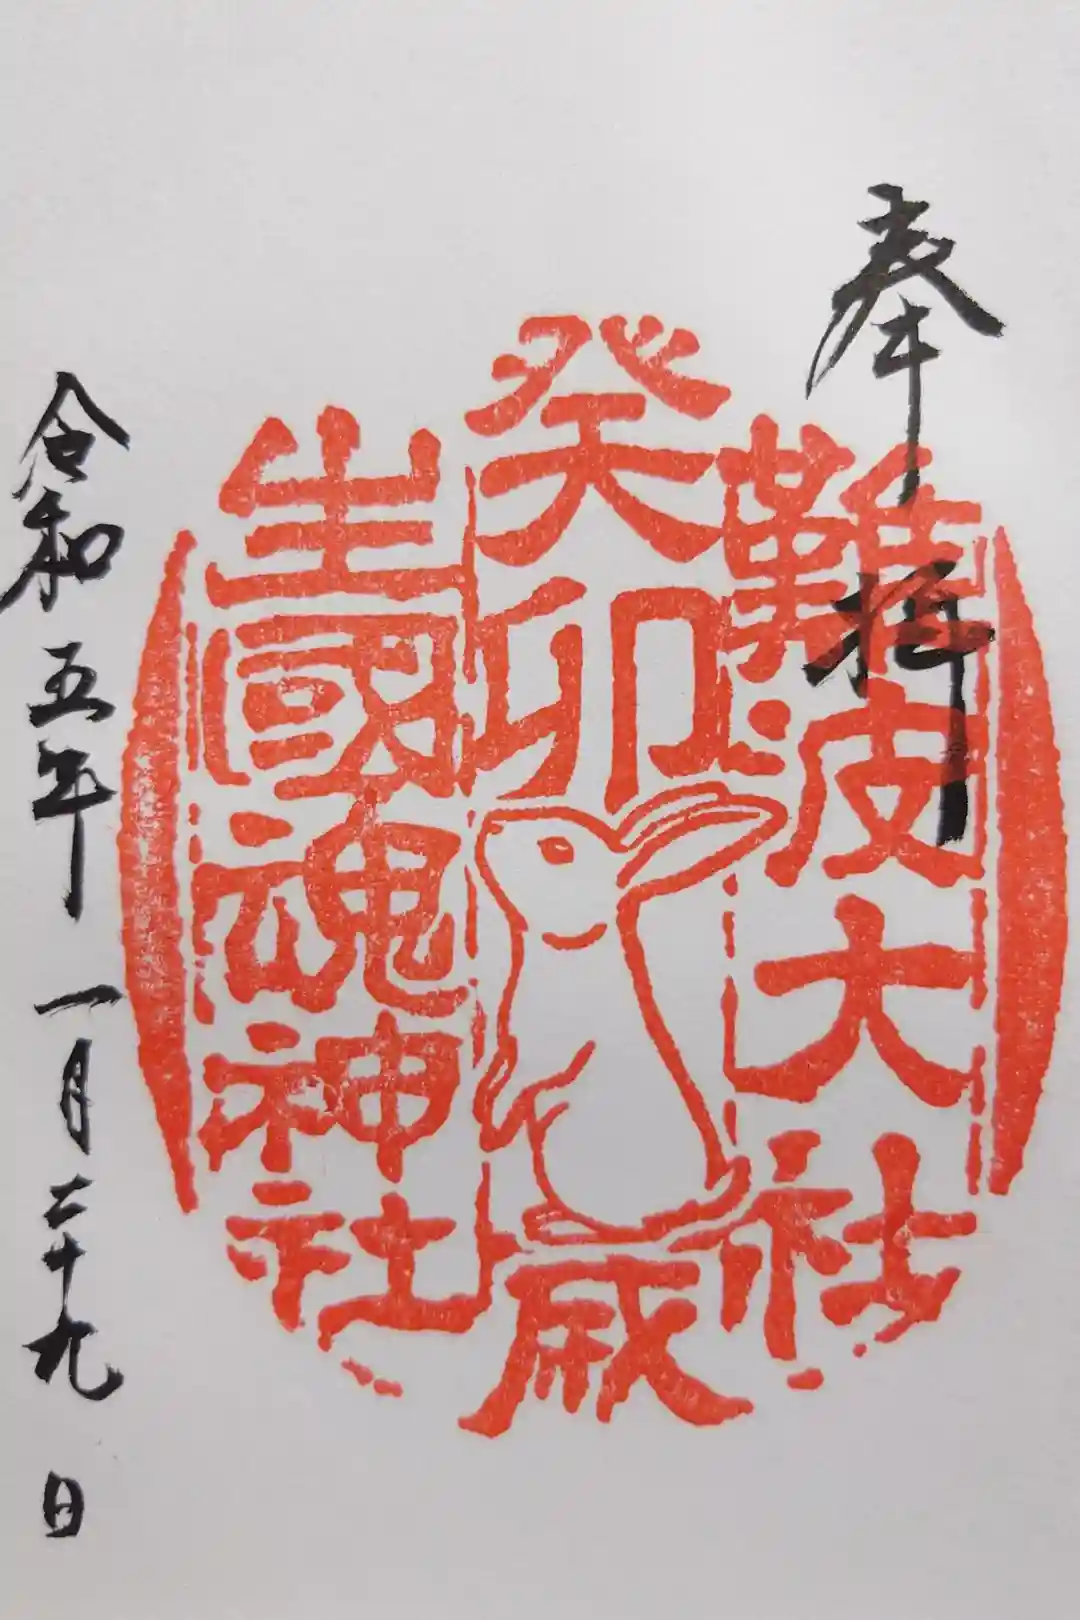 奉拝
難波大社
癸卯歳
生國魂神社
令和五年一月二十九日